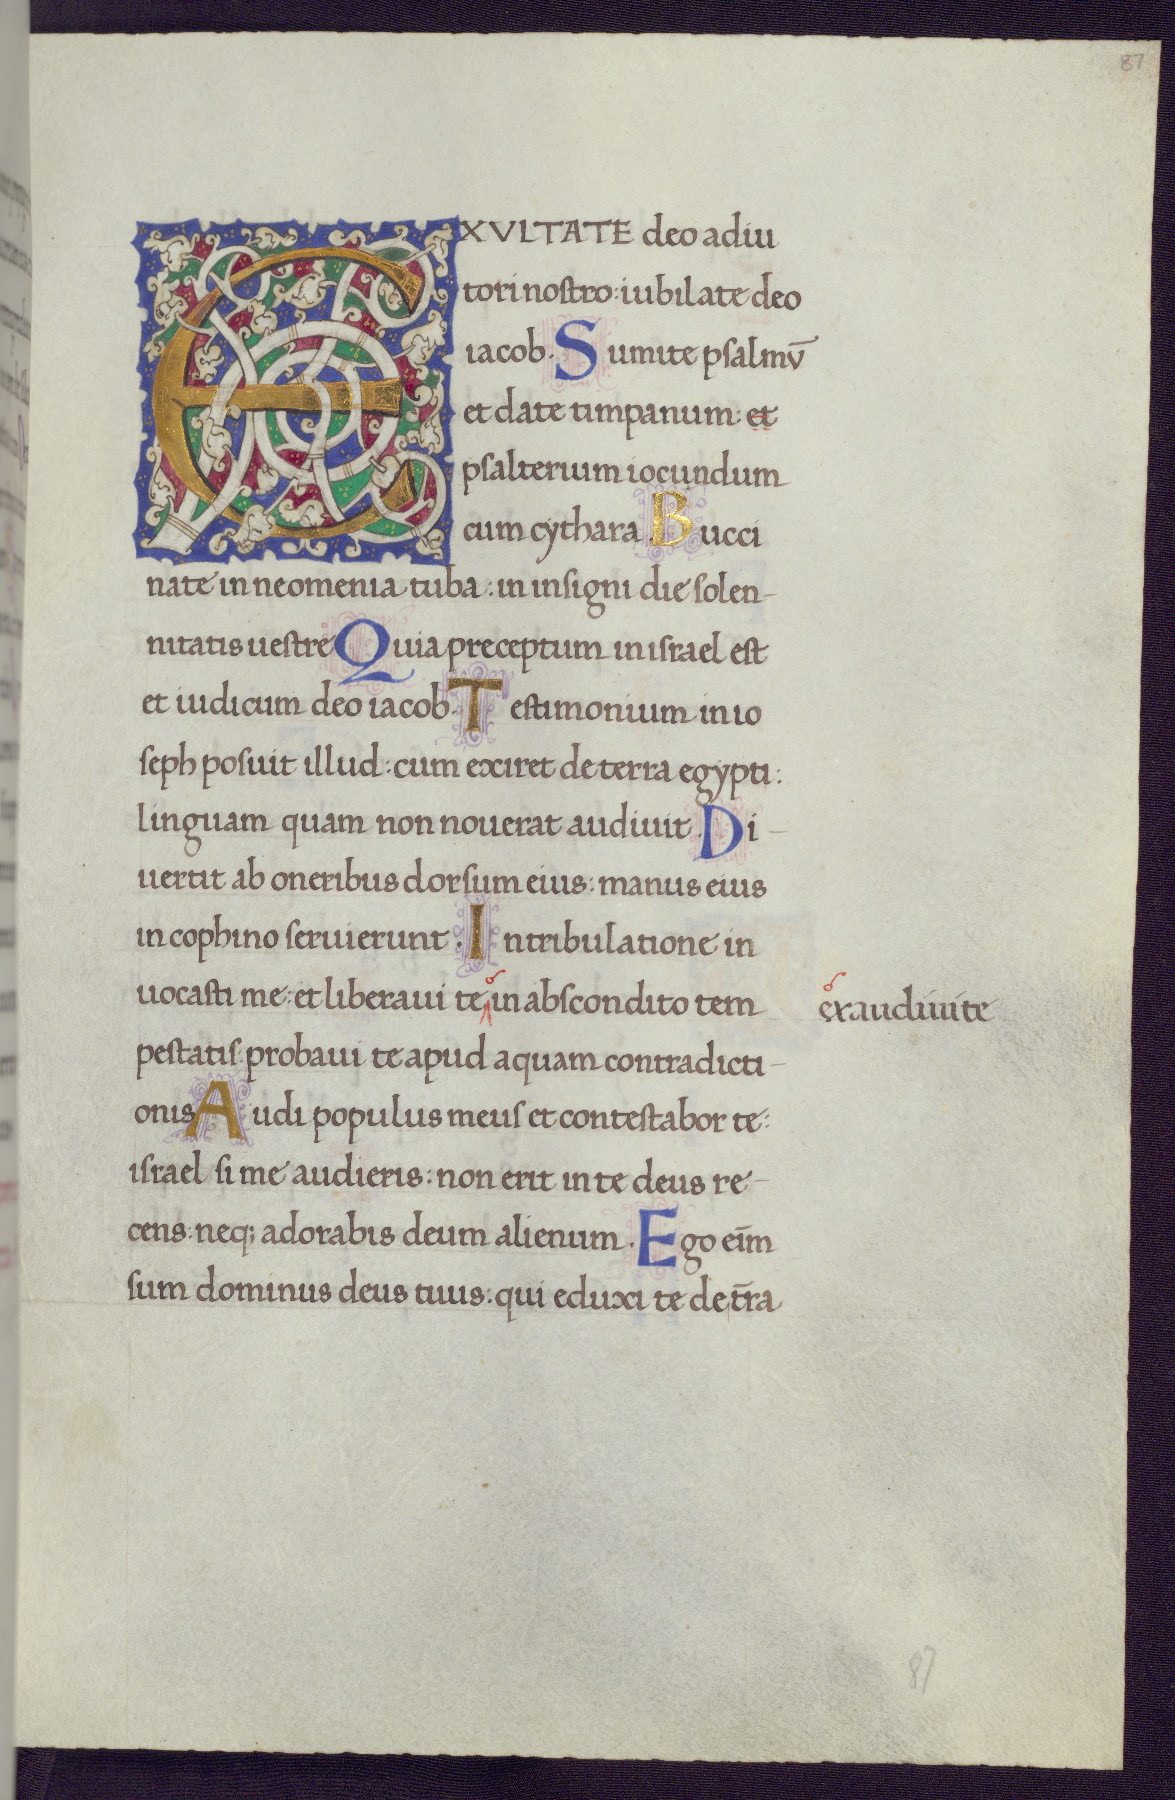 87
EXVLTATE deo adiu
tori nostro: iubilate deo
iacob. Sumite psalmū
et date timpanum: et
psalterium iocundum
cum cythara Bucci
nate in neomenia tuba: in insigni die solen-
nitatis uestre Quia preceptum in israel est
et iudicum deo iacob. Testimonium in io
seph posuit illud: cum exiret de terra egypti:
linguam quam non nouerat audiuit. Di-
uertit ab oneribus dorsum eius: manus eius
in cophino seruierunt. In tribulatione in
uocasti me: et liberaui te in abscondito tem
exaudiui te
pestatis: probaui te apud aquam contradicti-
onis Audi populus meus et contestabor te:
israel si me audieris: non erit in te deus re-
cens: neq; adorabis deum alienum. Ego eīm
sum dominus deus tuus: qui eduxi te de t̄ra
87